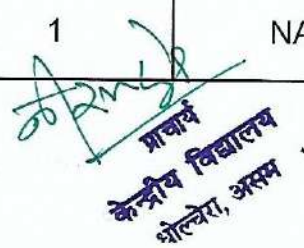 1 NA
प्राचार्य
केन्द्रीय विद्यालय
धोल्चेरा, असम